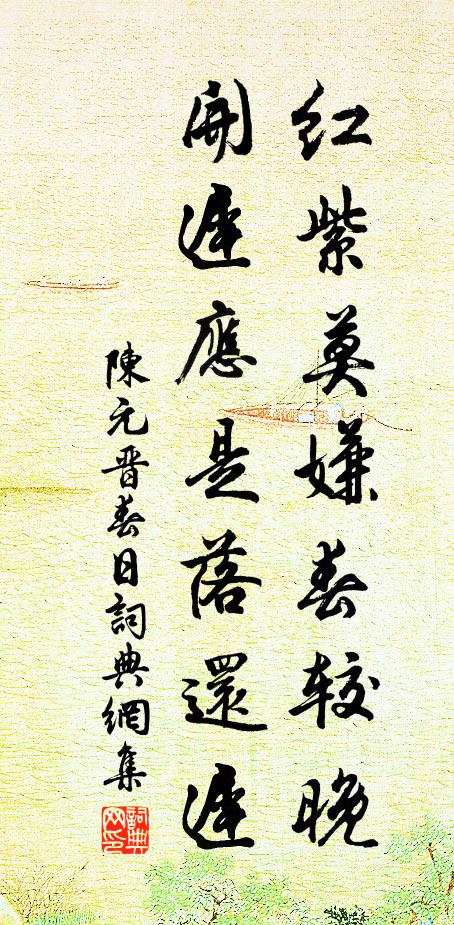 紅紫莫嫌春較晚
開遲應是落還遲
陳元晋春日詞典網集
詞典网印